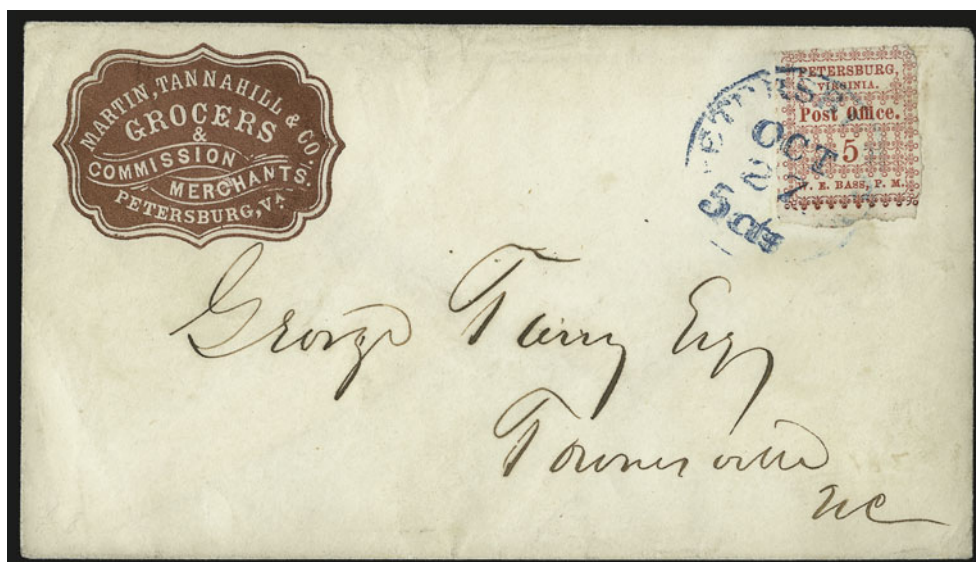 MARTIN, TANNAHILL & CO.
GROCERS
&
COMMISSION
MERCHANTS.
PETERSBURG, VA.
PETERSBURG,
VIRGINIA.
Post Office.
5
W. E. BASS, P. M.
OCT
5 cts
George Tarry Esq
Townesville
NC